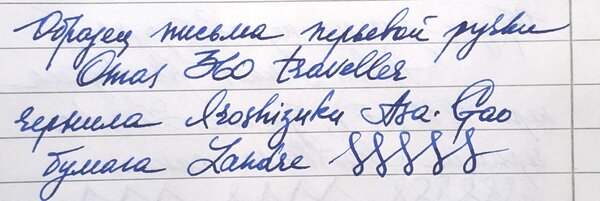 Образец письма перьевой ручки
Omas 360 traveller
чернила Iroshizuku Asa-Gao
бумага Landre §§§§§